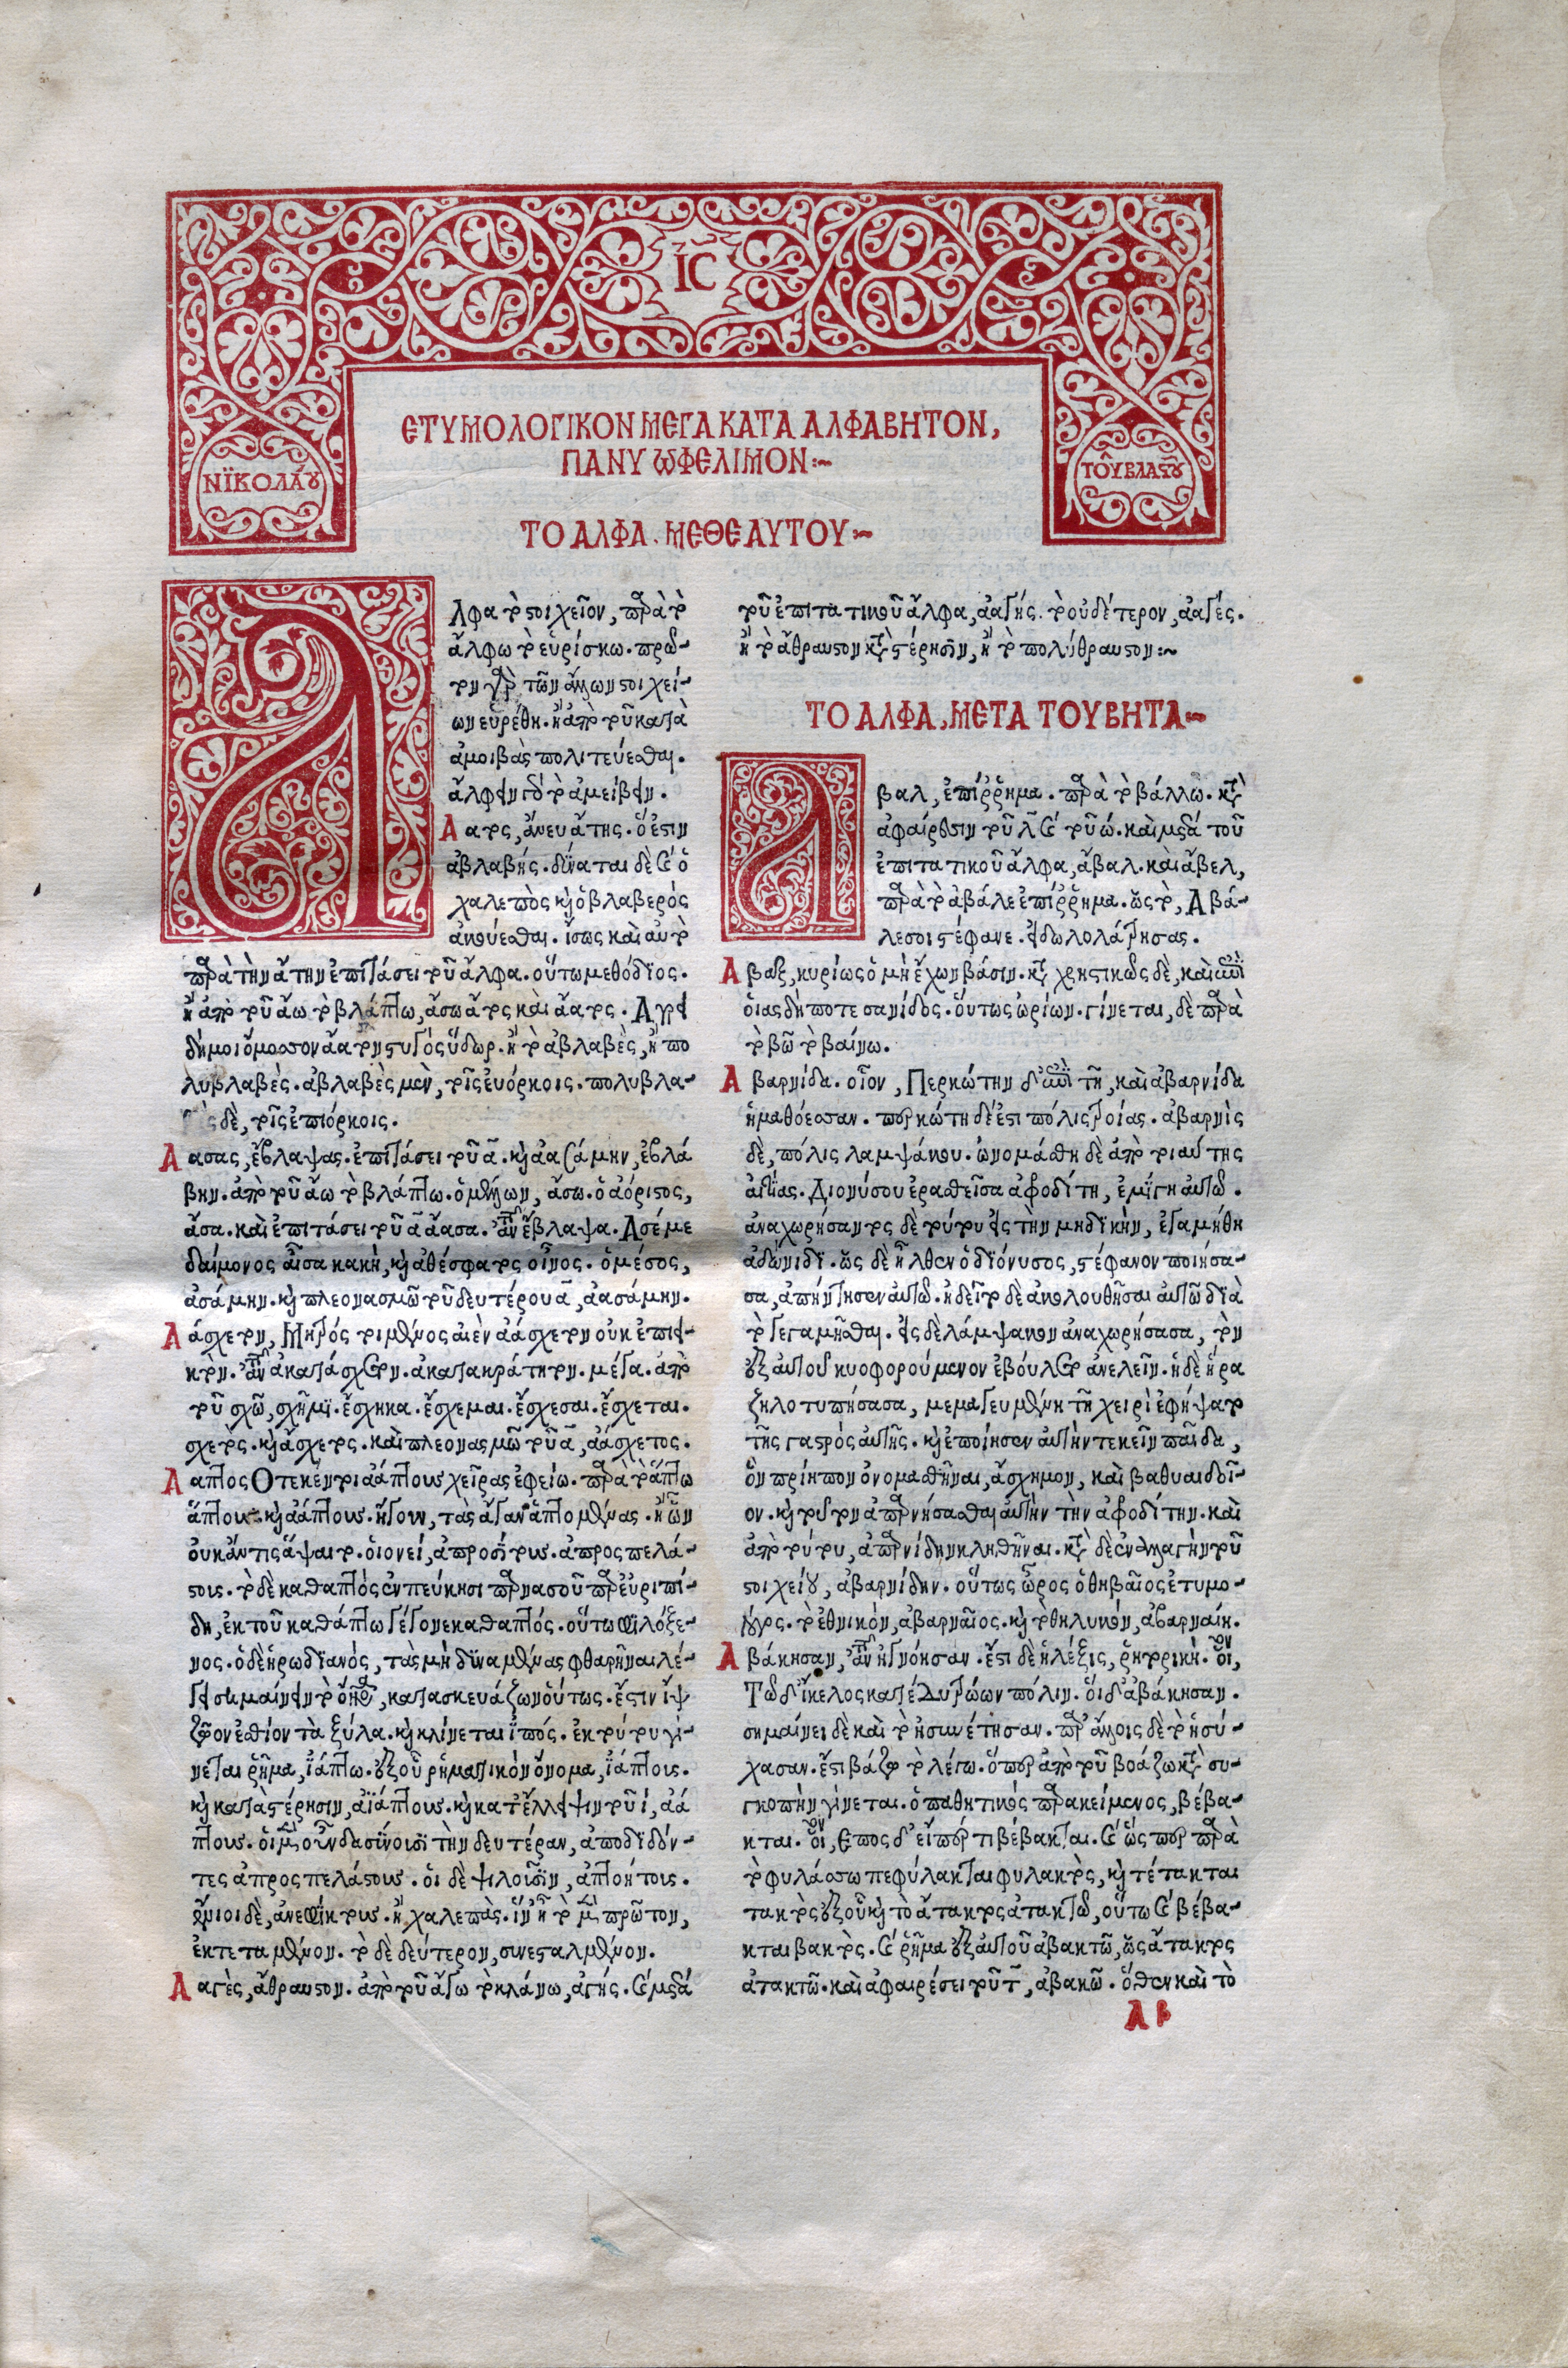 ΙC
ΝΪΚΟΛΆΟΥ
ΤΟΥ͂ ΒΛΑΣΤΟΥ͂
ΕΤΥΜΟΛΟΓΙΚΟΝ ΜΕΓΑ ΚΑΤΑ ΑΛΦΑΒΗΤΟΝ,
ΠΑΝΥ ΩΦΕΛΙΜΟΝ:~
ΤΟ ΑΛΦΑ. ΜΕΘ ΕΑΥΤΟΥ:~
Αλφα τὸ στοιχεῖον, παρὰ τὸ
ἄλφω τὸ εὑρίσκω. πρῶ-
τον γὰρ τῶν ἄλλων στοιχεί-
ων εὑρέθη. ἢ ἀπὸ τοῦ κατὰ
ἀμοιβὰς πολιτεύεσθαι.
ἄλφειν γὰρ τὸ ἀμείβειν.
Αατος, ἄνευ ἄτης. ὅ ἐστιν
ἀβλαβής. δύναται δὲ καὶ ὁ
χαλεπὸς καὶ ὁ βλαβερὸς
ἀκούεσθαι. ἴσως καὶ αὐτὸ
παρὰ τὴν ἄτην ἐπιτάσει τοῦ ἄλφα. οὕτω μεθόδϊος.
ἢ ἀπὸ τοῦ ἄω τὸ βλάπτω, ἄσω ἄτος καὶ ἄατος. Αγρει
δή μοι ὄμοσσον ἄατον στυγὸς ὕδωρ. ἢ τὸ ἀβλαβὲς, ἢ πο
λυβλαβές. ἀβλαβὲς μὲν, τοῖς εὐόρκοις. πολυβλα-
ὲς δὲ, τοῖς ἐπιόρκοις.
Αασας, ἔβλαψας. ἐπιτάσει τοῦ ᾱ. καὶ ἀασάμην, ἐβλά
βην. ἀπὸ τοῦ ἄω τὸ βλάπτω. ὁ μέλλων, ἄσω. ὁ ἀόριστος,
ἄσα. καὶ ἐπιτάσει τοῦ ᾱ ἄασα. ἀντὶ τοῦ ἔβλαψα. Ασέ με
δαίμονος αἶσα κακὴ, καὶ ἀθέσφατος οἶνος. ὁ μέσος,
ἀσάμην. καὶ πλεονασμῶ τοῦ δευτέρου ᾱ, ἀασάμην.
Αάσχετον, Μητρός τοι μένος αἰὲν ἀάσχετον οὐκ ἐπιει-
κτόν. ἀντὶ τοῦ ἀκατάσχετον. ἀκατακράτητον. μέγα. ἀπὸ
τοῦ σχῶ, σχῆμϊ. ἔσχηκα. ἔσχεμαι. ἔσχεσαι. ἔσχεται.
σχετός. καὶ ἄσχετος. καὶ πλεονασμῶ τοῦ ᾱ, ἀάσχετος.
Ααπτος Οτε κέν τοι ἀάπτους χεῖρας ἐφείω. παρὰ τὸ ἅπτω
ἄπτους καὶ ἀάπτους. ἤγουν, τὰς ἄγαν ἁπτομένας. ἢ ὧν
οὐκ ἄν τις ἅψαιτο. οἱονεί, ἀπροσίτους. ἀπροσπελά-
στοις. τὸ δὲ καθαπτὸς ἐν πεύκησι παρνασοῦ παρ εὐριπί-
δη, ἐκ τοῦ καθάπτω γέγονε καθαπτός. οὕτω φιλόξε-
νος. ὁ δὲ ἡρωδϊανὸς, τὰς μὴ δϋναμένας φθαρῆναι λέ-
γει σημαίνειν τὸ ὄνομα, κατασκευάζων οὕτως. ἔστιν ἲψ
ζῶον ἐσθίον τὰ ξύλα. καὶ κλίνεται ἶπός. ἐκ τούτου γί-
νεται ῥῆμα, ἰάπτω. ἐξ οὗ ῥηματικὸν ὄνομα, ἰάπτοις.
καὶ κατὰ στέρησιν, ἀϊάπτους. καὶ κατ ἔλλειψιν τοῦ ι, ἀά
πτους. οἱ μὲν οὖν δασύνουσϊ τὴν δευτέραν, ἀποδϊδόν-
τες ἀπροσπελάστους. οἱ δὲ ψιλοῦσϊν, ἀπτοήτοις.
ἔνιοι δὲ, ἀνεφίκτους. ἢ χαλεπάς. ἵν ᾖ τὸ μὲν πρῶτον,
ἐκτεταμένον. τὸ δὲ δεύτερον, συνεσταλμένον.
Ααγὲς, ἄθραυστον. ἀπὸ τοῦ ἄγω τὸ κλάνω, ἀγής. καὶ μετὰ
τοῦ ἐπιτατικοῦ ἄλφα, ἀαγής. τὸ οὐδέτερον, ἀαγές.
ἢ τὸ ἄθραυστον κατὰ στέρησϊν, ἢ τὸ πολύθραυστον:~
ΤΟ ΑΛΦΑ, ΜΕΤΑ ΤΟΥ ΒΗΤΑ~
Αβαλ, ἐπίρρημα. παρὰ τὸ βάλλω. κατὰ
ἀφαίρεσιν τοῦ λ̄ καὶ τοῦ ω. καὶ μετὰ τοῦ
ἐπιτατικοῦ ἄλφα, ἄβαλ. καὶ ἄβελ,
παρὰ τὸ ἀβάλε ἐπίρρημα. ὥς τὸ, Αβά-
λε σοι στέφανε. εἰδωλολάτρησας.
Αβαξ, κυρίως ὁ μὴ ἔχων βάσιν. καταχρηστικῶς δὲ, καὶ ἐπὶ
οἵας δήποτε σανίδος. οὕτως ὠρίων. γίνεται, δὲ παρὰ
τὸ βῶ τὸ βαίνω.
Αβαρνίδα. οἷον, Περκώτην δ᾽ ἐπὶ τῆ, καὶ ἀβαρνίδα
ἠμαθόεσσαν. περκώτη δέ ἐστι πόλις τροίας. ἀβαρνὶς
δὲ, πόλις λαμψάκου. ὠνομάσθη δὲ ἀπὸ τοιαύτης
αἰτίας. Διονύσου ἐρασθεῖσα ἀφροδίτη, ἐμίγη αὐτῶ.
ἀναχωρήσαντος δὲ τούτου εἰς τὴν ϊνδϊκὴν, ἐγαμήθη
ἀδώνιδϊ. ὥς δὲ ἦλθεν ὁ διόνυσος, στέφανον ποιήσα-
σα, ἀπήντησεν αὐτῶ. ἠδεῖτο δὲ ἀκολουθῆσαι αὐτῶ δϊὰ
τὸ γεγαμῆσθαι. εἰς δὲ λάμψακον ἀναχωρήσασα, τὸν
ἐξ αὐτοῦ κυοφορούμενον ἐβούλετο ἀνελεῖν. ἡ δὲ ἥρα
ζηλοτυπήσασα, μεμαγευμένη τῆ χειρὶ ἐφήψατο
τῆς γαστρὸς αὐτῆς. καὶ ἐποίησεν αὐτὴν τεκεῖν παῖδα,
ὃν πρίηπον ὀνομασθῆναι, ἄσχημον, καὶ βαθυαιδοῖ-
ον. καὶ τοῦτον ἀπαρνήσασθαι αὐτὴν τὴν ἀφροδίτην. καὶ
ἀπὸ τούτου, ἀπαρνίδην κληθῆναι. κατὰ δὲ ἐναλλαγὴν τοῦ
στοιχείου, ἀβαρνίδην. οὕτως ὦρος ὁ θηβαῖος ἐτυμο-
λόγος. τὸ ἐθνικὸν, ἀβαρναῖος. καὶ τὸ θηλυκὸν, ἀβαρναίη.
Αβάκησαν, ἀντὶ τοῦ ἠγνόησαν. ἔστι δὲ ἡ λέξις, ῥητορική. οἷον,
Τῶ δ᾽ ἴκελος κατέδυ τρώων πόλιν. οἱ δ᾽ ἀβάκησαν.
σημαίνει δὲ καὶ τὸ ἠσυνέτησαν. παρ ἄλλοις δὲ τὸ ἡσύ-
χασαν. ἔστι βάζω τὸ λέγω. ὅπερ ἀπὸ τοῦ βοάζω κατὰ συ-
γκοπὴν γίνεται. ὁ παθητικὸς παρακείμενος, βέβα-
κται. οἷον, Επος δ᾽ εἴπερ τι βέβακται. καὶ ὥσπερ παρὰ
τὸ φυλάσσω πεφύλακται φυλακτὸς, καὶ τέτακται
τακτὸς ἐξ οὗ καὶ τὸ ἄτακτος ἀτακτῶ, οὕτω καὶ βέβα-
κται βακτὸς. καὶ ῥῆμα ἐξ αὐτοῦ ἀβακτῶ, ὥς ἄτακτος
ἀτακτῶ. καὶ ἀφαιρέσει τοῦ τ̄, ἀβακῶ. ὅθεν καὶ τὸ
Α β